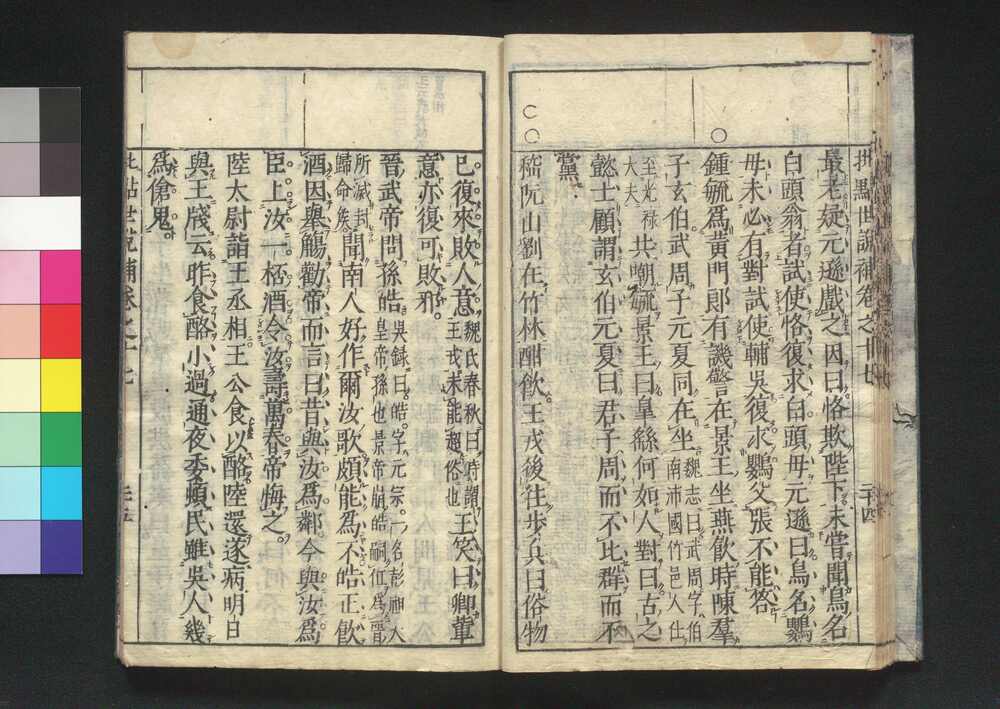 批點世說補卷之十七 二十四
最老疑元遜戲之因曰恪欺陛下未嘗聞鳥名
白頭翁者試使恪復求白頭母元遜曰鳥名鸚
母未必有對試使輔吳復求鸚父張不能答
鍾毓爲黃門郎有譏警在景王坐燕飮時陳羣
子玄伯武周子元夏同在坐魏志曰武周字伯南沛國竹邑人仕
至光祿大夫共嘲毓景王曰皋繇何如人對曰古之
懿士顧謂玄伯元夏曰君子周而不比群而不
黨
嵇阮山劉在竹林酣飮王戎後往步兵曰俗物
已復來敗人意魏氏春秋曰時謂王戎未能超俗也王笑曰卿輩
意亦復可敗邪
晉武帝問孫皓吳録曰皓字元宗一名彭祖大皇帝孫也景帝崩皓嗣位爲晉
所滅封歸命侯聞南人好作爾汝歌頗能爲不皓正飮
酒因舉觴勸帝而言曰昔與汝爲鄰今與汝爲
臣上汝一桮酒令汝壽萬春帝悔之
陸太尉詣王丞相王公食以酪陸還遂病明日
與王牋云昨食酪小過通夜委頓民雖吳人幾
爲傖鬼
批點世說補卷之十七 二十五